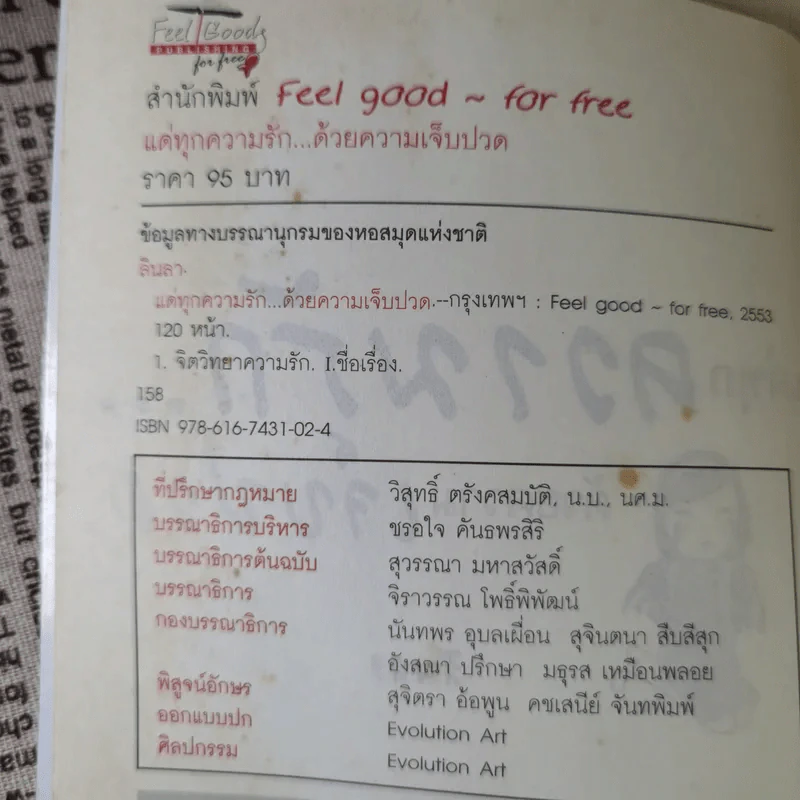 Feel Goods
PUBLISHING
for free
สำนักพิมพ์ Feel good ~ for free
แด่ทุกความรัก...ด้วยความเจ็บปวด
ราคา 95 บาท
ข้อมูลทางบรรณานุกรมของหอสมุดแห่งชาติ
ลินลา.
แด่ทุกความรัก...ด้วยความเจ็บปวด.--กรุงเทพฯ : Feel good ~ for free, 2553
120 หน้า.
1. จิตวิทยาความรัก. I.ชื่อเรื่อง.
158
ISBN 978-616-7431-02-4
ที่ปรึกษากฎหมาย วิสุทธิ์ ตรังคสมบัติ, น.บ., นศ.ม.
บรรณาธิการบริหาร ชรอใจ คันธพรสิริ
บรรณาธิการต้นฉบับ สุวรรณา มหาสวัสดิ์
บรรณาธิการ จิราวรรณ โพธิ์พิพัฒน์
กองบรรณาธิการ นันทพร อุบลเผื่อน สุจินตนา สืบสีสุก
อังสณา ปรึกษา มธุรส เหมือนพลอย
พิสูจน์อักษร สุจิตรา อ้อพูน คชเสนีย์ จันทพิมพ์
ออกแบบปก Evolution Art
ศิลปกรรม Evolution Art